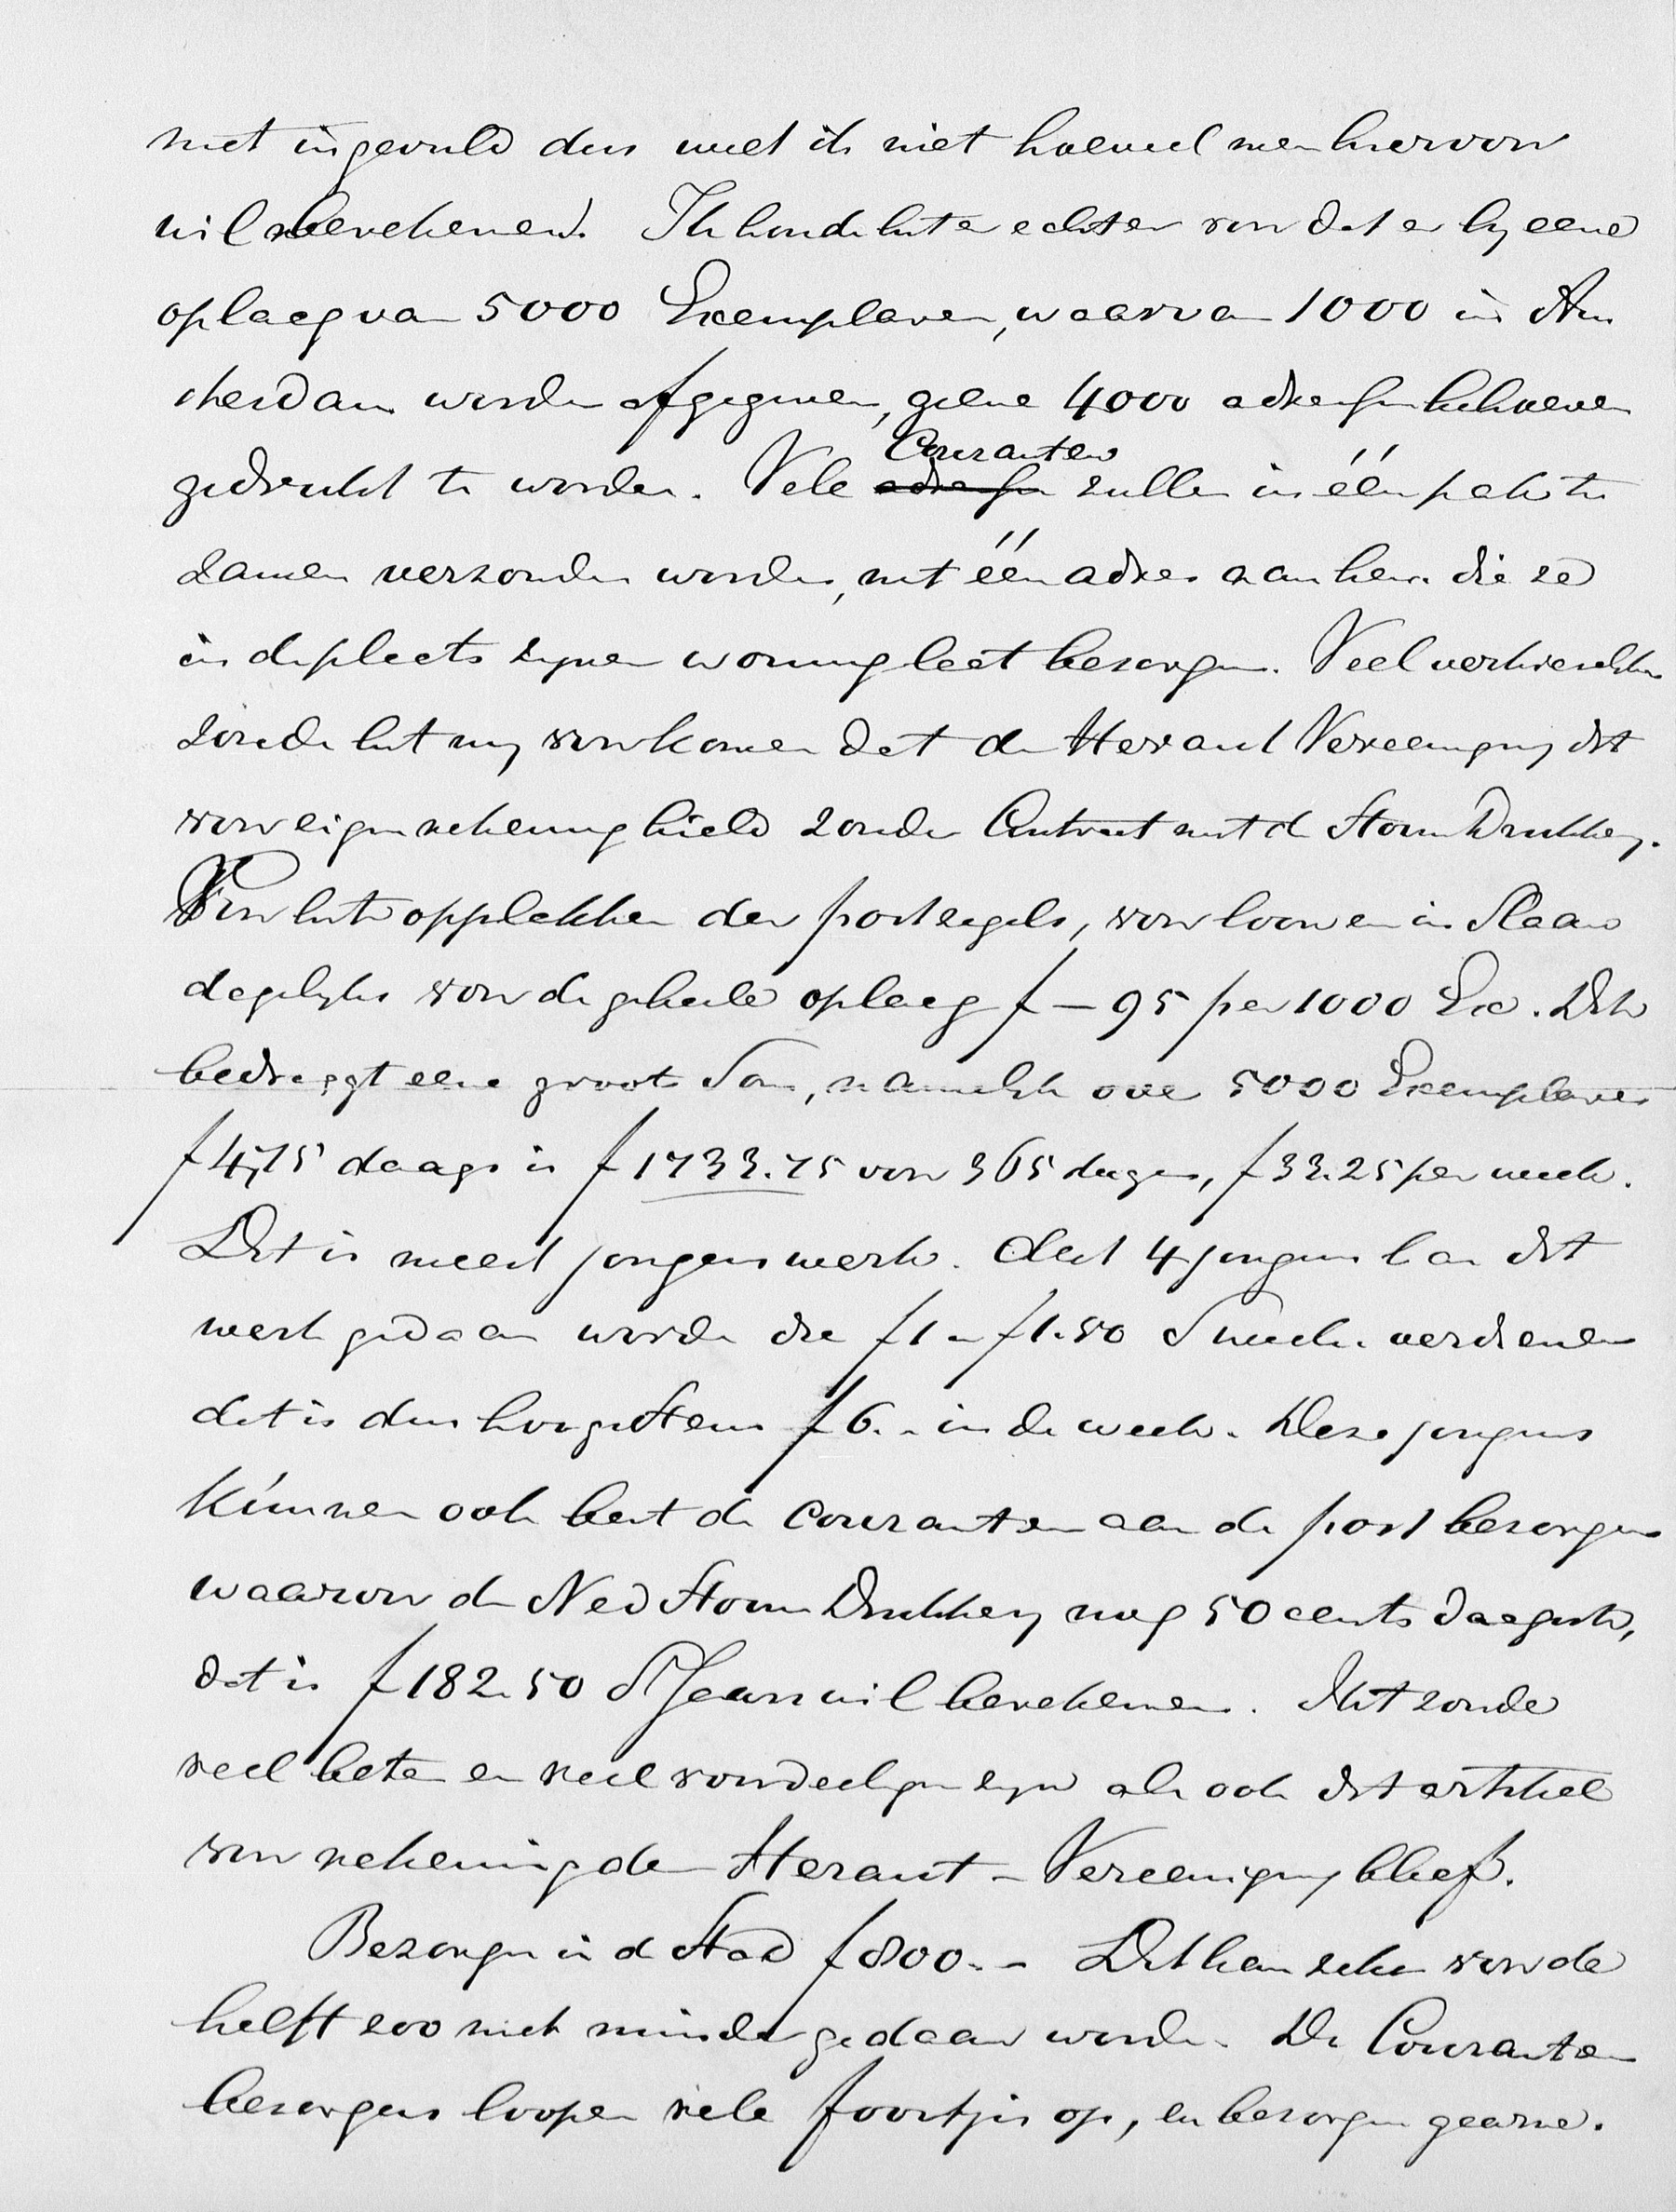 niet ingevuld dus weet ik niet hoeveel men hiervoor
wil berekenen. Ik houde het er echter voor dat er by eene
oplaag van 5000 Exemplaren, waarvan 1000 in Am
sterdam worden afgegeven, geene 4000 adressen behoeven
gedrukt te worden. Vele Couranten zullen in één pak te
zamen verzonden worden, met één adres aan hem die ze
in de plaats zyner woning laat bezorgen. Veel verkieslyker
zoude het my voorkomen dat de Heraut Vereeniging dit
voor eigen rekening hield zonder Contract met de Stoom Drukkery.
Voor het opplakken der postzegels, voor loonen in Slaan
dagelyks voor de geheele oplaag f — 95 per 1000 Ex. Dit
bedraagt eene groote Som, namelyk over 5000 Exemplaren
f 4,75 daags is f 1733.75 voor 365 dagen, f 33.25 per week.
Dit is meest jongens werk. Met 4 jongens kan dit
werk gedaan worden die f 1 a f 1.50 's weeks verdienen
dat is dus hoogstens f 6.- in de week. Deze jongens
kunnen ook best de couranten aan de post bezorgen
waarvoor de Ned Stoom Drukkery nog 50 cents daags,
dat is f 182.50 's Jaars wil berekenen. Het zoude
veel beter en veel voordeeliger zyn als ook dit artikel
voor rekening der Heraut - Vereeniging bleef.
Bezorgen in de Stad f 800.- Dit kan zeker voor de
helft zoo niet minder gedaan worden. De Couranten
bezorgers loopen vele foortjes op, en bezorgen gaarne.